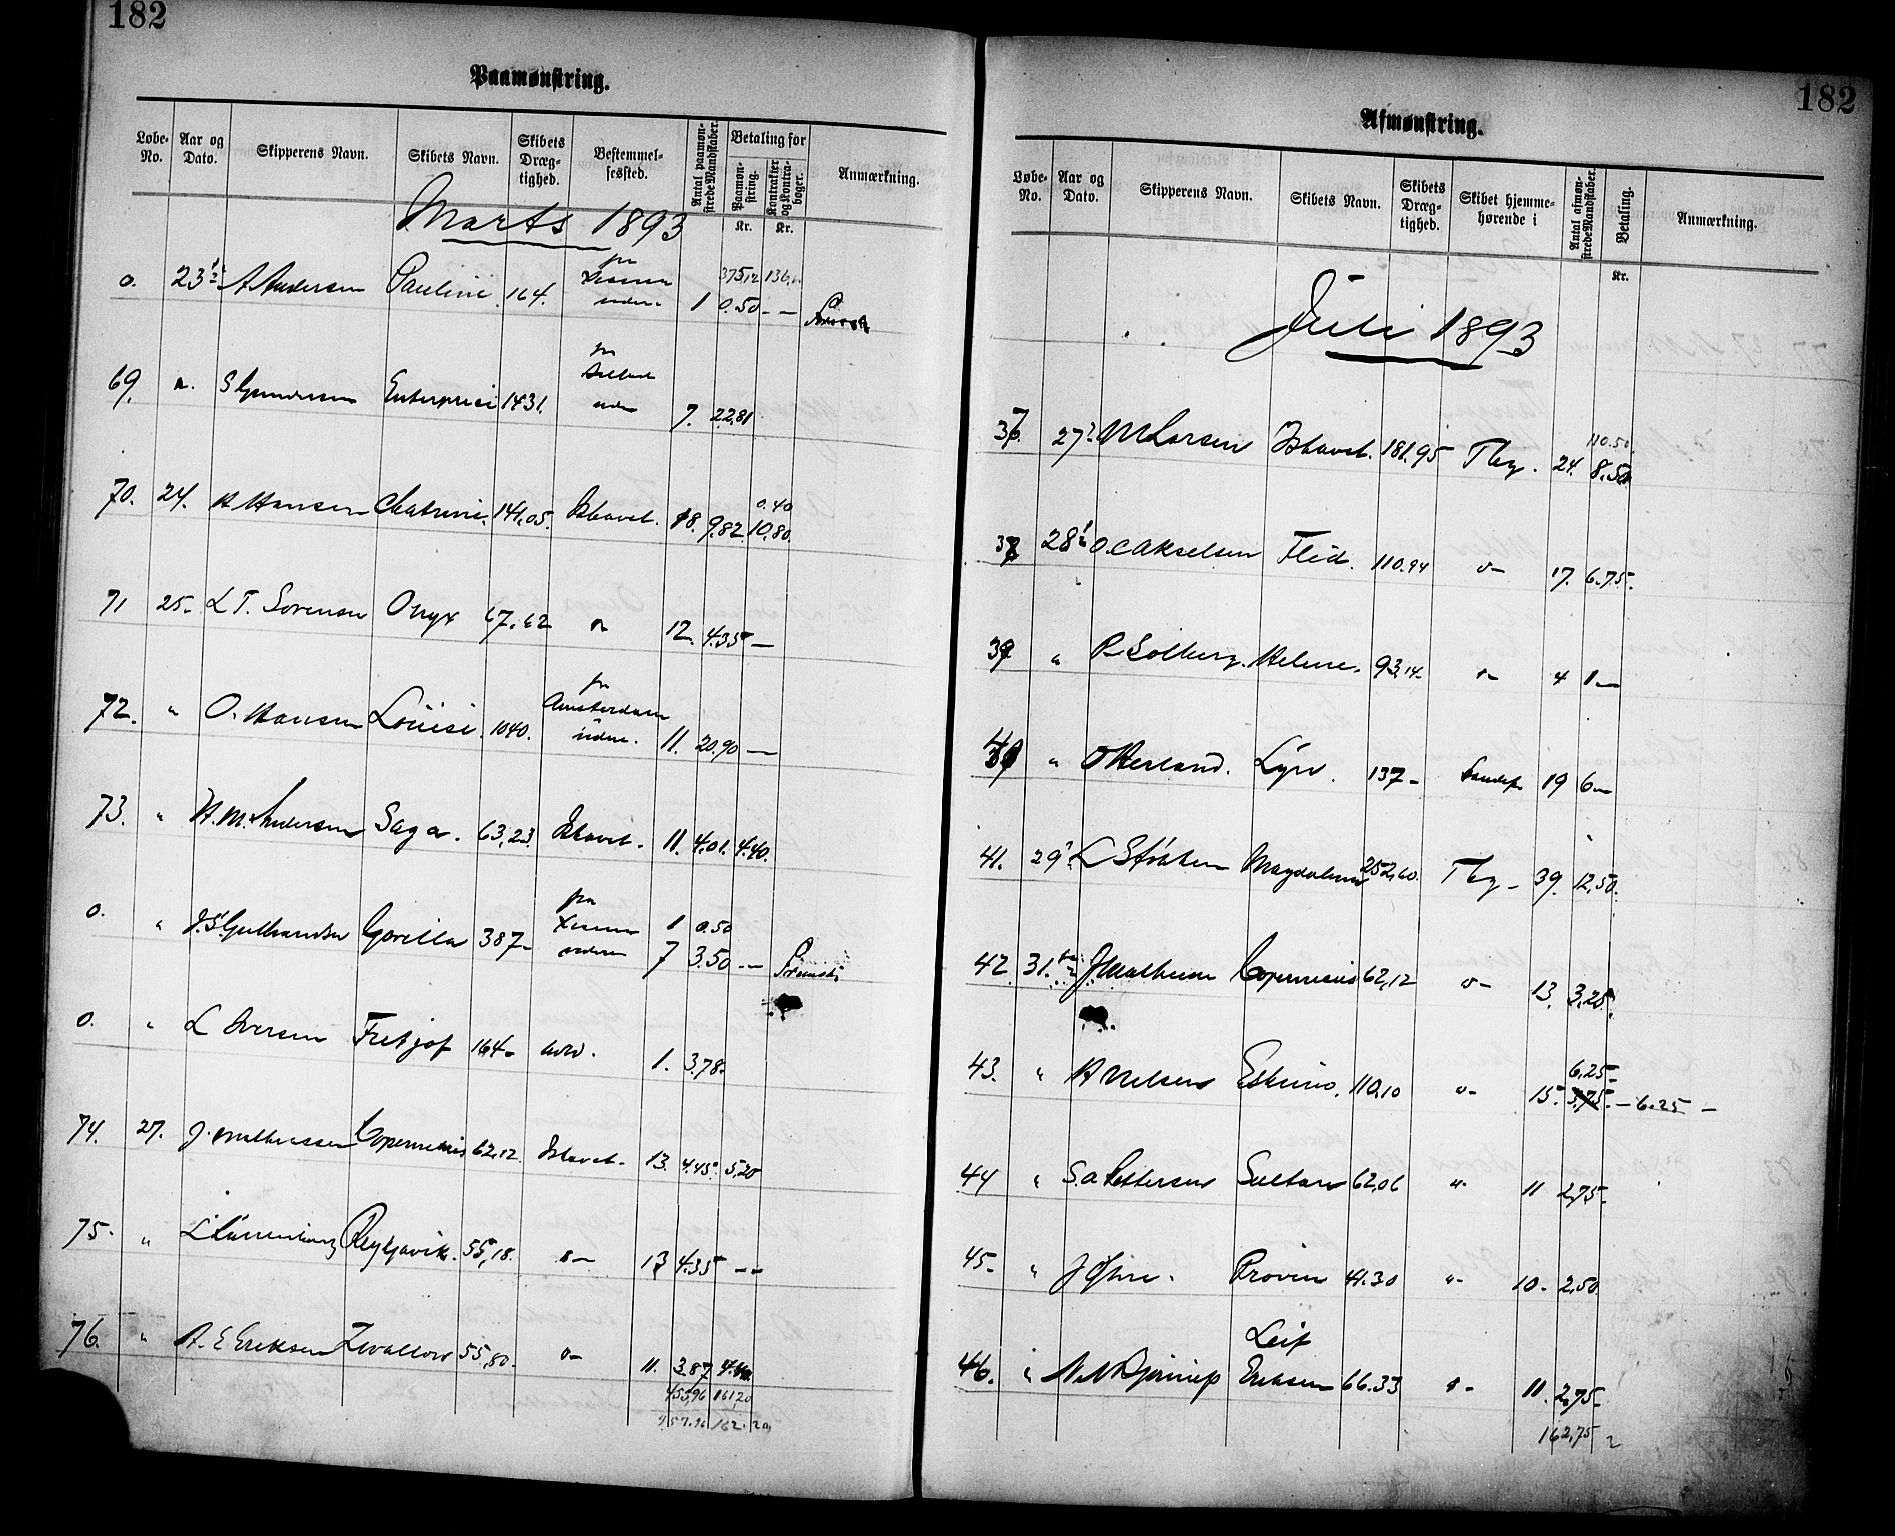 182
Paamønstring.
Løbe-No. Aar og Dato. Skipperens Navn. Skibets Navn. Skibets Dræg-tighed. Bestemmel-sessted. Antal paamøn-strede Mandskaber. Betaling for Paamøn-string. Kr. Kontrakter og Kontra-bøger. Kr. Anmærkning.
Marts 1893
375,12 136,
o. 23 A Andersen Pauline 164. 1 0.50 - -
69. S Gundersen Enterprise 1431. 7. 22,81
0.40
70. 24. A Hansen Cathrine. 141,05. Ishavet. 18. 9,82 10,80.
71 25. L T. Sorensen Onyx 67,62 o- 12. 4.35 -
72. " O. Hansen Louise 1040. fra Amsterdam videre. 11. 20,90 -
73. " H. M. Andersen Saga. 63,23. Ishavet. 11. 4,01. 4.40.
1 0.50
o. " J. S. Gulbrandsen Gorilla 387- fra videre 7 3.50 - -
o. " L Iversen Fritjof 164- 1. 3,78.
74. 27. J. Mathiassen Copernicus 62,12. Ishavet. 13. 4.45. 5,20
75. " Reykjavik. 55,18. o- 13 4.35 - -
76. " A. E Eriksen Zvallow 55,80. o- 11. 3,87 4.40
455,96 161,20
457.96 162.20
182
Afmønstring.
Løbe-No. Aar og Dato. Skipperens Navn. Skibets Navn. Skibets Dræg-tighed. Skibet hjemme-hørende i Antal afmøn-strede Mandskaber. Betaling. Kr. Anmærkning.
Juli 1893
110.50
37. 27 M Larsen Ishavet. 181.95 Tbg. 24. 8.50
38 28 O. C Akselsen Flid. 110.94 o- 17. 6.75.
39 " P Solberg. Helene. 93,14. o- 4 1 -
40 " O Herland. Lyn. 137- Sandef. 19 6 -
41. 29 L Støkken Magdalena 252,60. Tbg- 39. 12,50.
42 31. J Mathisen Copernicus 62,12 o- 13. 3,25.
6,25-
43. " A Nilsen Eskimo. 110,10 o- 15. 3,75. - 6.25 -
44 " S. A Pettersen Sultan 62,06 "- 11 2,75-
45- " Provin 41.30 "- 10- 2,50.
Leif
46. " Eriksen 66.33 o- 11. 2,75-
162,75